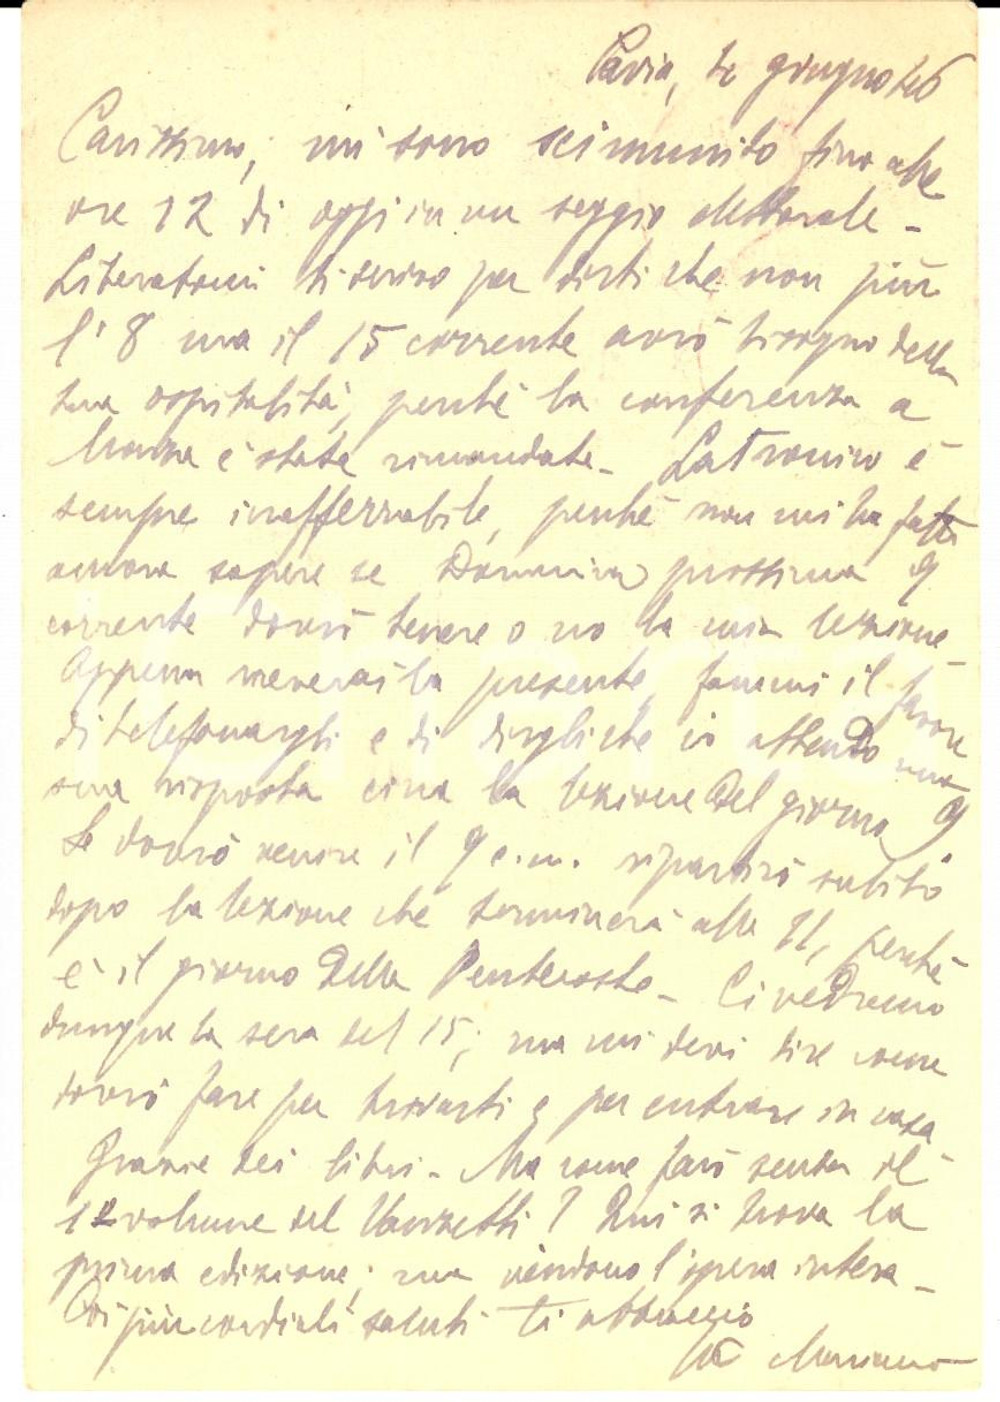 Pavia, 4 giugno 46
Carissimo, mi sono scimunito fino alle
ore 12 di oggi in un seggio elettorale -
Liberatomi ti scrivo per dirti che non più
l'8 ma il 15 corrente avrò bisogno della
tua ospitalità, perché la conferenza a
Monza è stata rimandata - Latronico è
sempre inafferrabile, perché non mi ha fatto
ancora sapere se Domenica prossima 9
corrente dovrò tenere o no la mia lezione
Appena riceverai la presente, fammi il favore
di telefonargli e di dirgli che io attendo una
sua risposta circa la lezione del giorno 9
Se dovrò venire il 9 c.m. ripartirò subito
dopo la lezione che terminerà alle 11, perché
è il giorno della Pentecoste - Ci vedremo
dunque la sera del 15; ma mi devi dire come
dovrò fare per trovarti e per entrare in casa
Grazie dei libri - Ma come farò senza il
1° volume del Vanzetti? Qui si trova la
prima edizione; ma vendono l'opera intera -
Coi più cordiali saluti ti abbraccio
Mariano